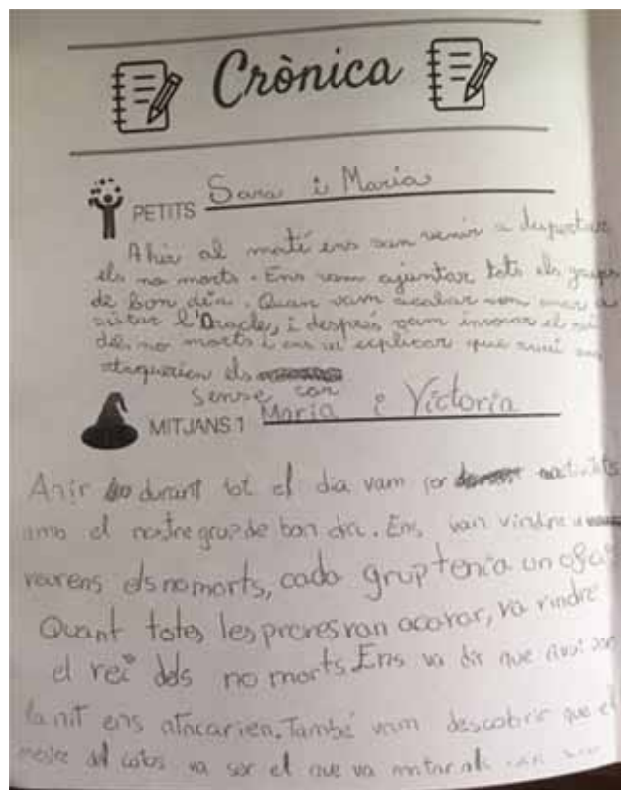 Crònica
PETITS Sara i Maria
Ahir al matí ens van venir a despertar
els no morts. Ens vam ajuntar tots els grups
de bon dia. Quan vam acabar vam anar a
visitar l'Oracle, i després vam invocar el rei
dels no morts i ens va explicar que avui ens
ataquarien els
Sense cor
MITJANS 1 Maria i Victoria
Anir durant tot el dia vam fer activitats
amb el nostre grup de bon dia. Ens van vindre a
veurens els no morts, cada grup tenia un
Quant totes les proves van acavar, va vindre
el rei dels no morts. Ens va dir que avui
la nit ens atacarien. També vam descobrir que el
va ser el que va matar als